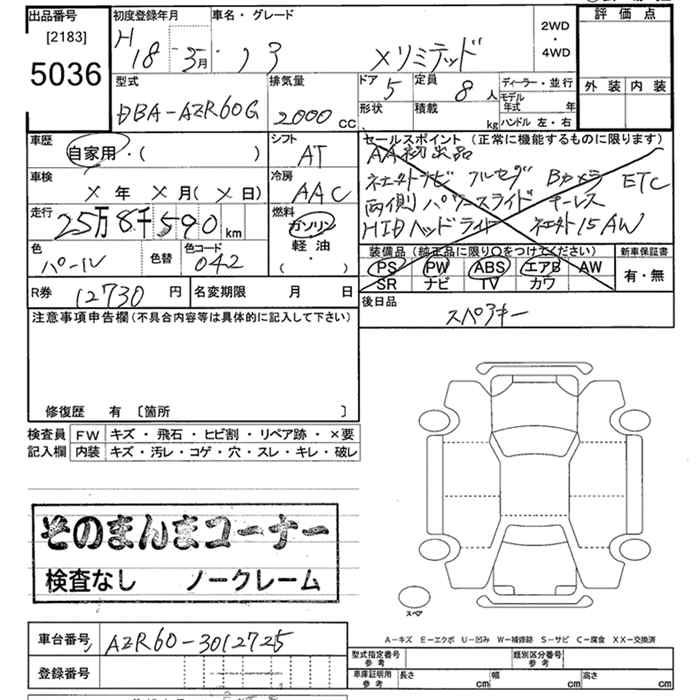 出品番号 初度登録年月 車名・グレード 2WD ・ 4WD 評価点
[2183]
5036
H 18 - 5月 ノア Xリミテッド
外装 内装
型式 排気量 ドア 5 定員 8人 ディーラー・並行
モデル年式 年
DBA-AZR60G 2000cc 形状 積載 kg ハンドル 左・右
車歴 シフト セールスポイント (正常に機能するものに限ります)
自家用・( ) AT AA初出品
車検 冷房 ネエナトナビ フルセグ Bカメラ ETC
X年 X月(X日) AAC 両側パワースライド キーレス
走行 燃料 HIDヘッドライト 15AW
25万8千590km ガソリン
軽油
( ・ )
装備品 (純正品に限り○をつけてください) 新車保証書
色 色替 色コード PS PW ABS エアB AW 有・無
パール 042 SR ナビ TV カワ
R券 12730円 名変期限 月 日 後日品
スペアキー
注意事項申告欄(不具合内容等は具体的に記入して下さい)
修復歴 有 〔箇所 〕
検査員 FW キズ・飛石・ヒビ割・リペア跡・×要
記入欄 内装 キズ・汚レ・コゲ・穴・スレ・キレ・破レ
そのまんまコーナー
検査なし ノークレーム
スペア
A-キズ E-エクボ U-凹み W-補修跡 S-サビ C-腐食 XX-交換済
車台番号 AZR60-3012725
型式指定番号 参考 類別区分番号 参考
登録番号 車庫証明用 参考 長さ cm 幅 cm 高さ cm